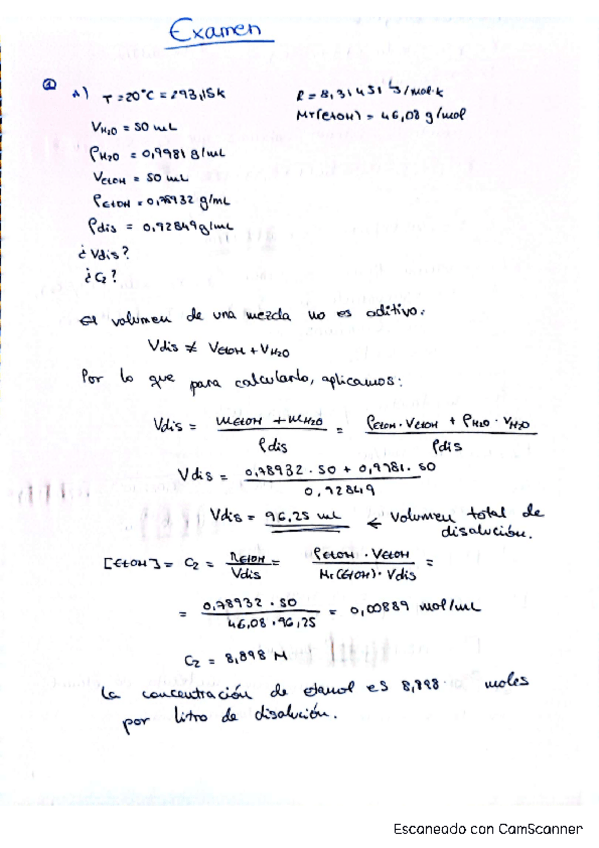 Examen
① A) T = 20°C = 293,15 K
R = 8,31451 J/mol·K
Mr(EtOH) = 46,08 g/mol
V H₂O = 50 mL
ρ H₂O = 0,9981 g/mL
V EtOH = 50 mL
ρ EtOH = 0,78932 g/mL
ρdis = 0,92849 g/mL
¿Vdis?
¿C₂?
El volumen de una mezcla no es aditivo:
Vdis ≠ V EtOH + V H₂O
Por lo que para calcularlo, aplicamos:
Vdis = (m EtOH + m H₂O) / ρdis = (ρ EtOH · V EtOH + ρ H₂O · V H₂O) / ρdis
Vdis = (0,78932 · 50 + 0,9981 · 50) / 0,92849
Vdis = 96,25 mL ← Volumen total de
disolución.
[EtOH] = C₂ = n EtOH / Vdis = (ρ EtOH · V EtOH) / (Mr(EtOH) · Vdis) =
= (0,78932 · 50) / (46,08 · 96,25) = 0,00889 mol/mL
C₂ = 8,898 M
La concentración de etanol es 8,898 moles
por litro de disolución.
Escaneado con CamScanner